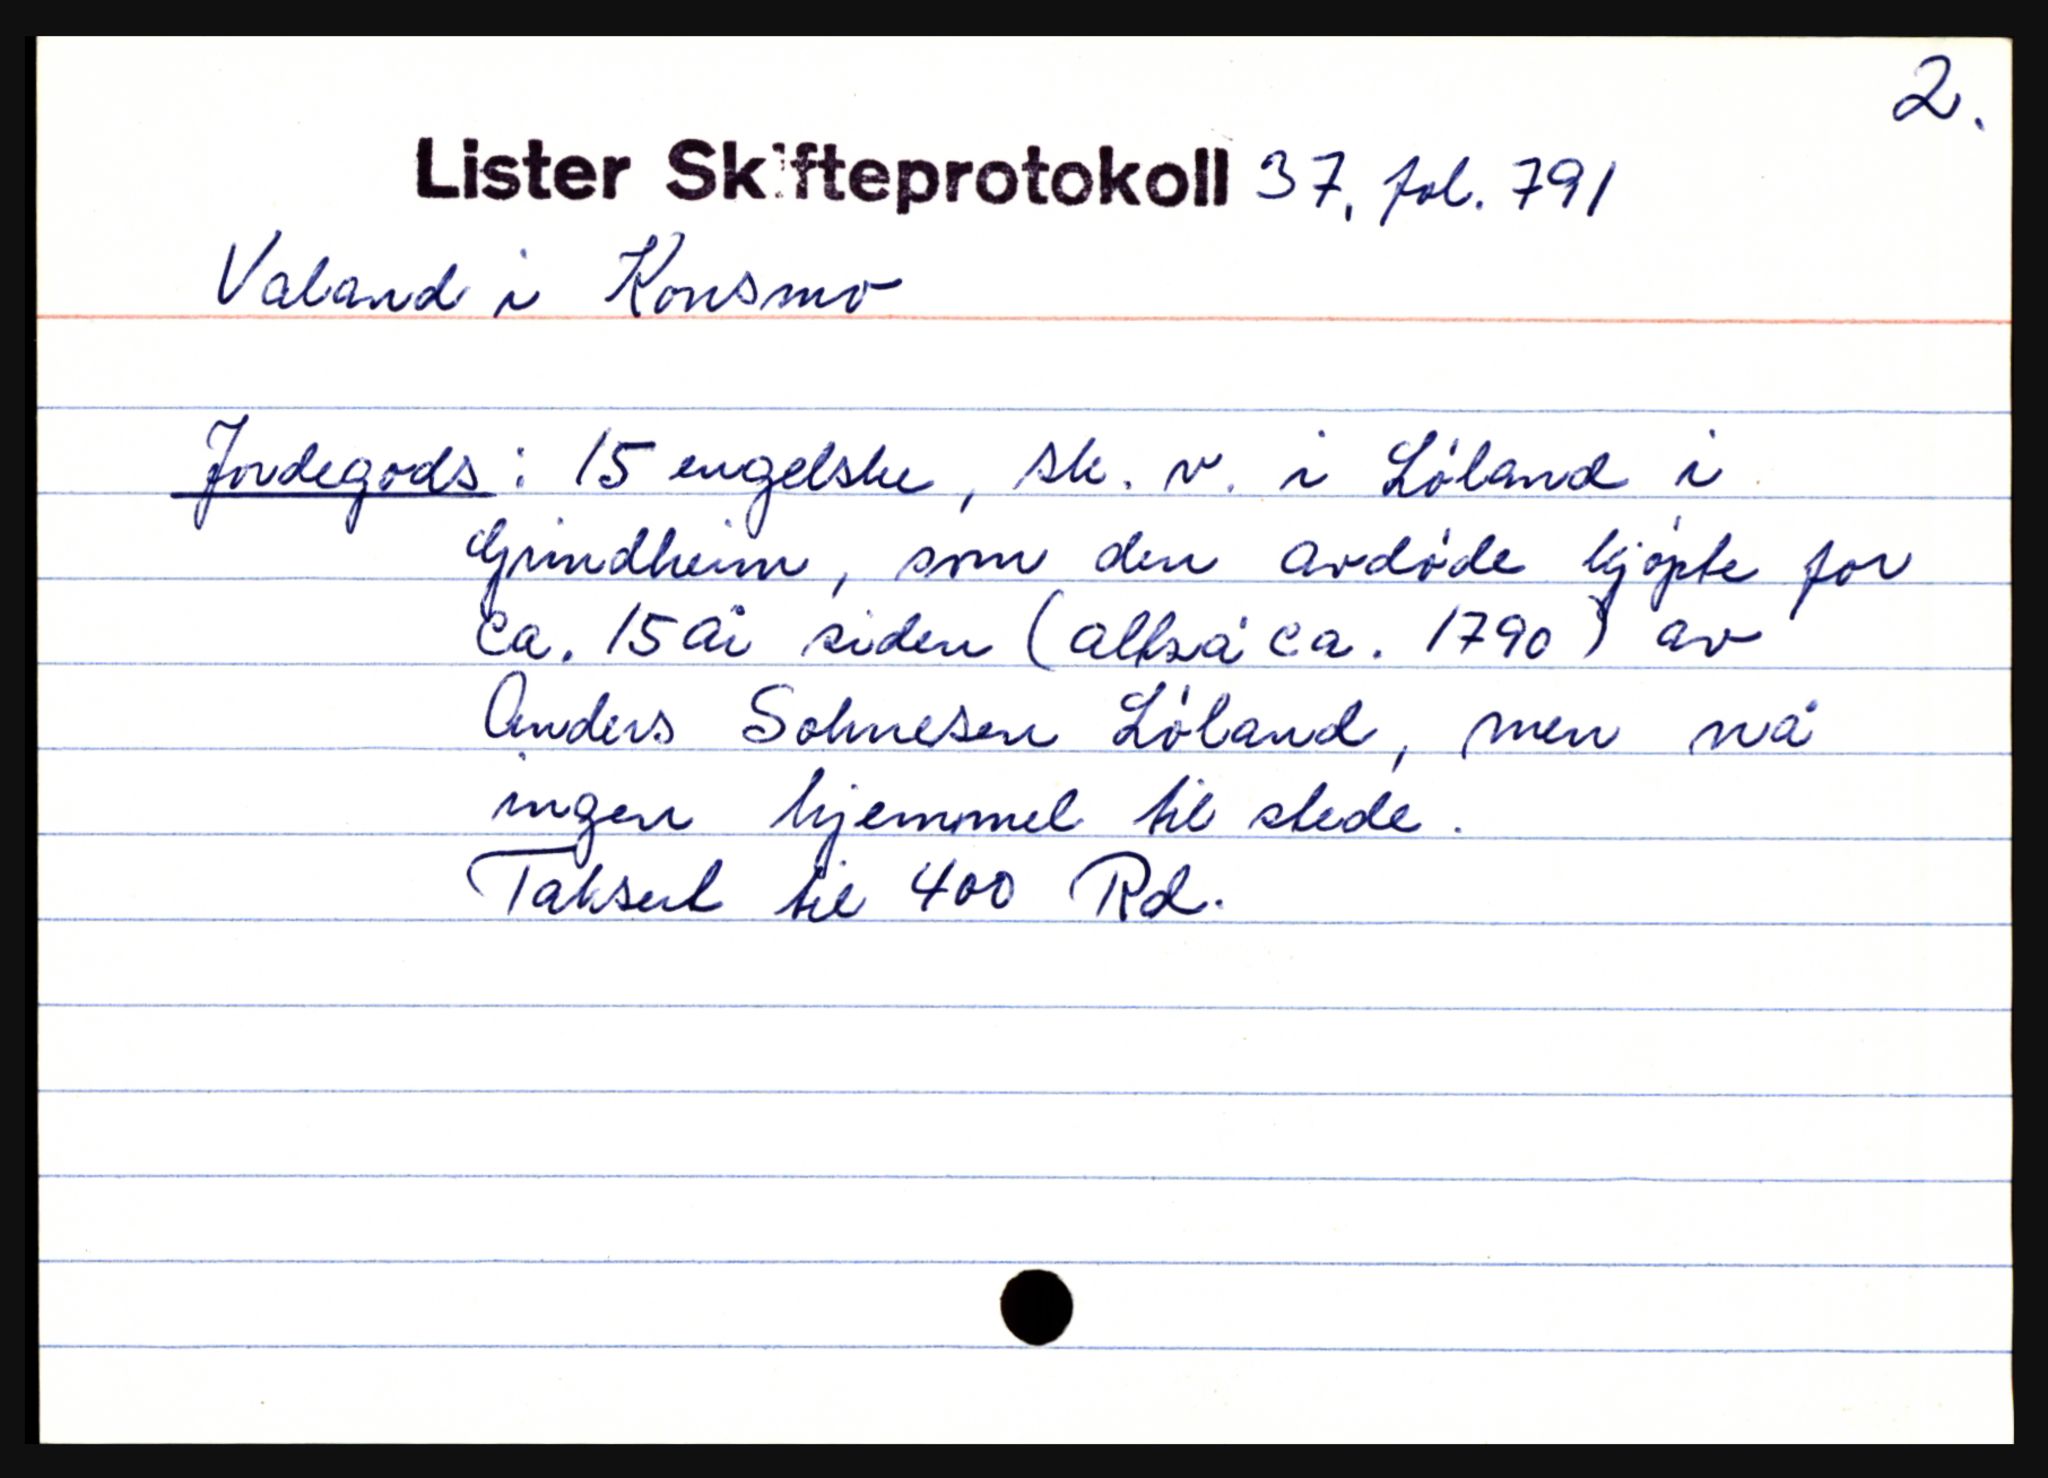 2.
Lister Skifteprotokoll 37, fol. 791
Valand i Konsmo
Jordegods: 15 engelske, sk. v. i Løland i
Grindheim, som den avdøde kjøpte for
ca. 15 år siden (altså ca. 1790) av
Anders Solmesen Løland, men nå
ingen hjemmel til stede.
Taksert til 400 Rd.